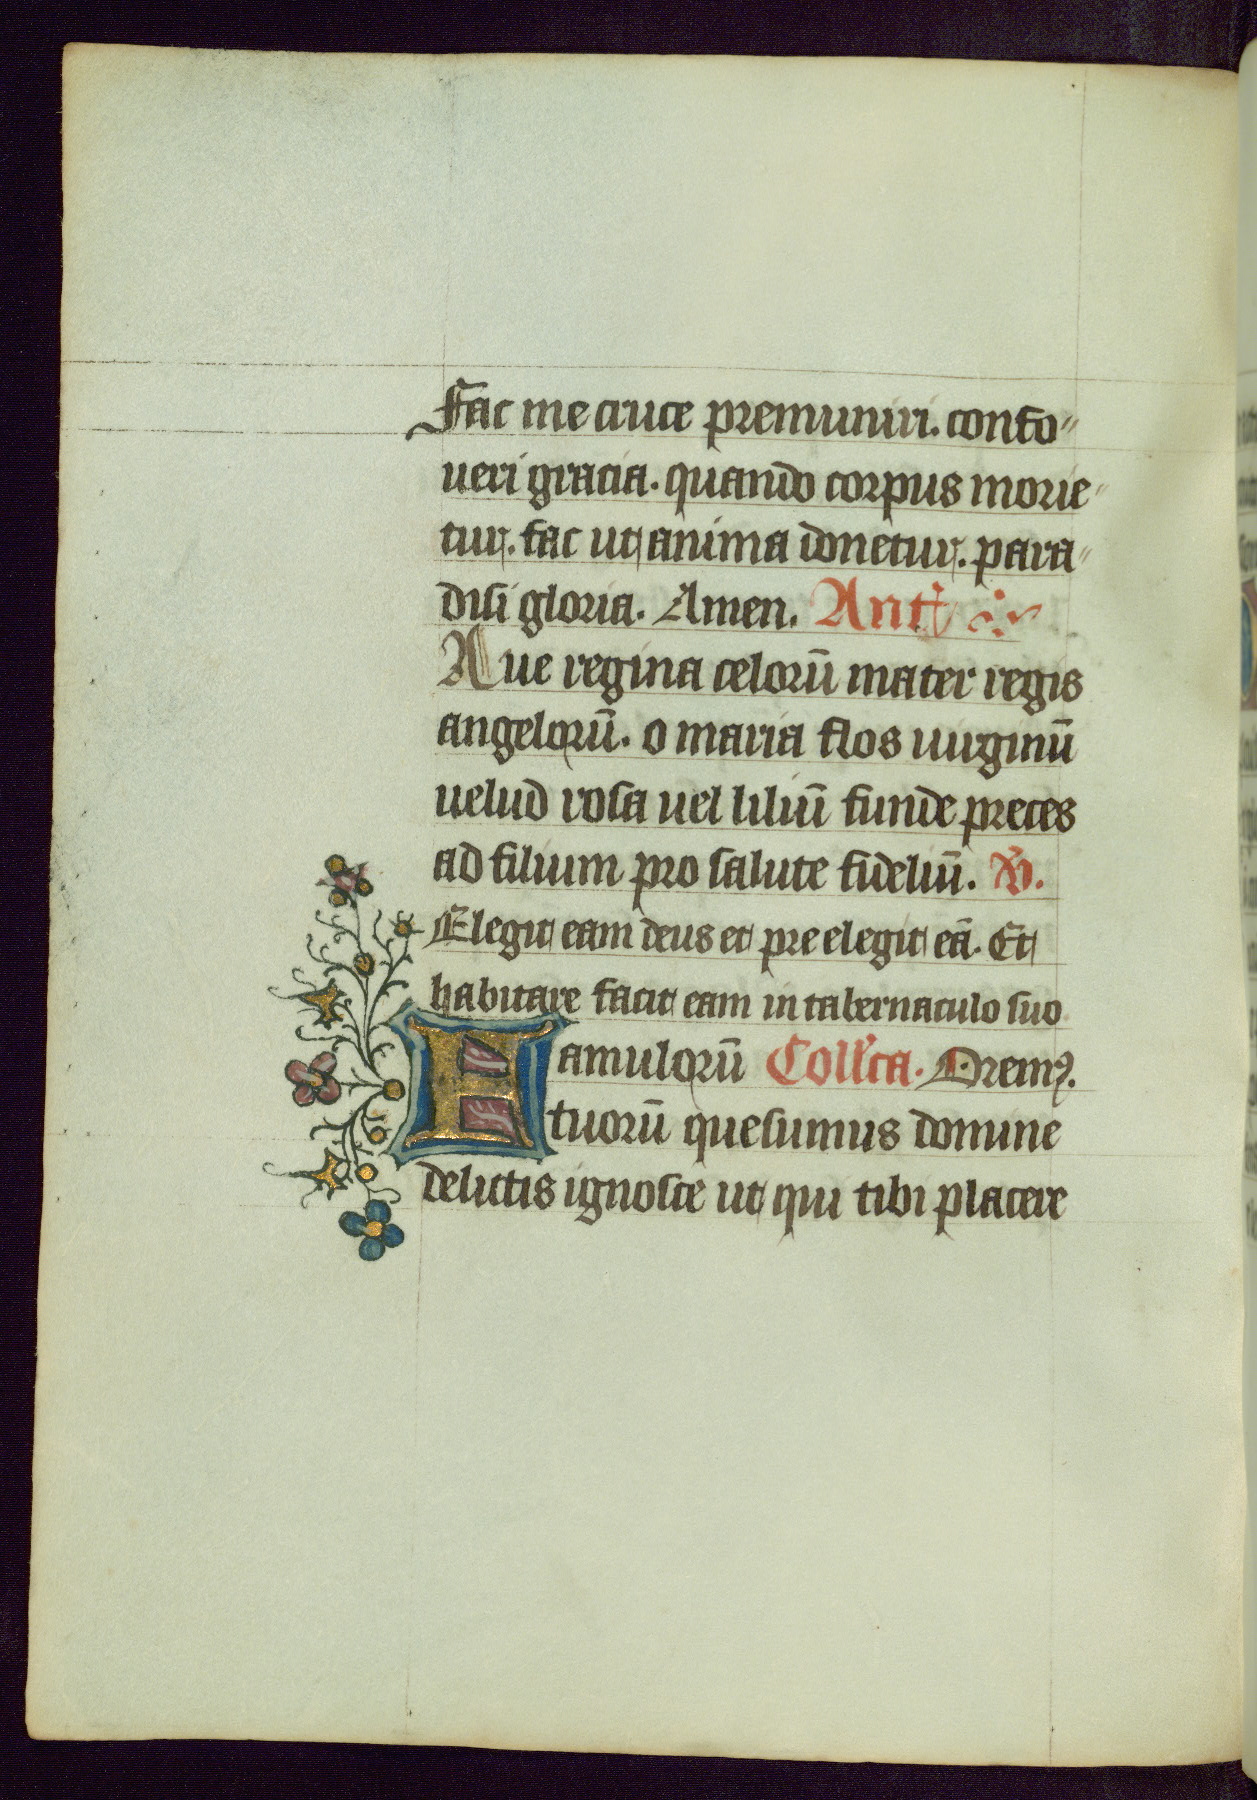 Fac me cruce premuniri. confo"
ueri gracia. quando corpus morie"
tur. fac ut anima donetur. para"
disi gloria. Amen. Ant
Aue regina celorū mater regis
angelorū. o maria flos uirginū
uelud rosa uel liliū funde preces
ad filium pro salute fideliū. V.
Elegit eam deus et preelegit eā. Et
habitare facit eam in tabernaculo suo
Famulorū Coll'ca. Oremꝰ.
tuorū quesumus domine
delictis ignosce ut qui tibi placere